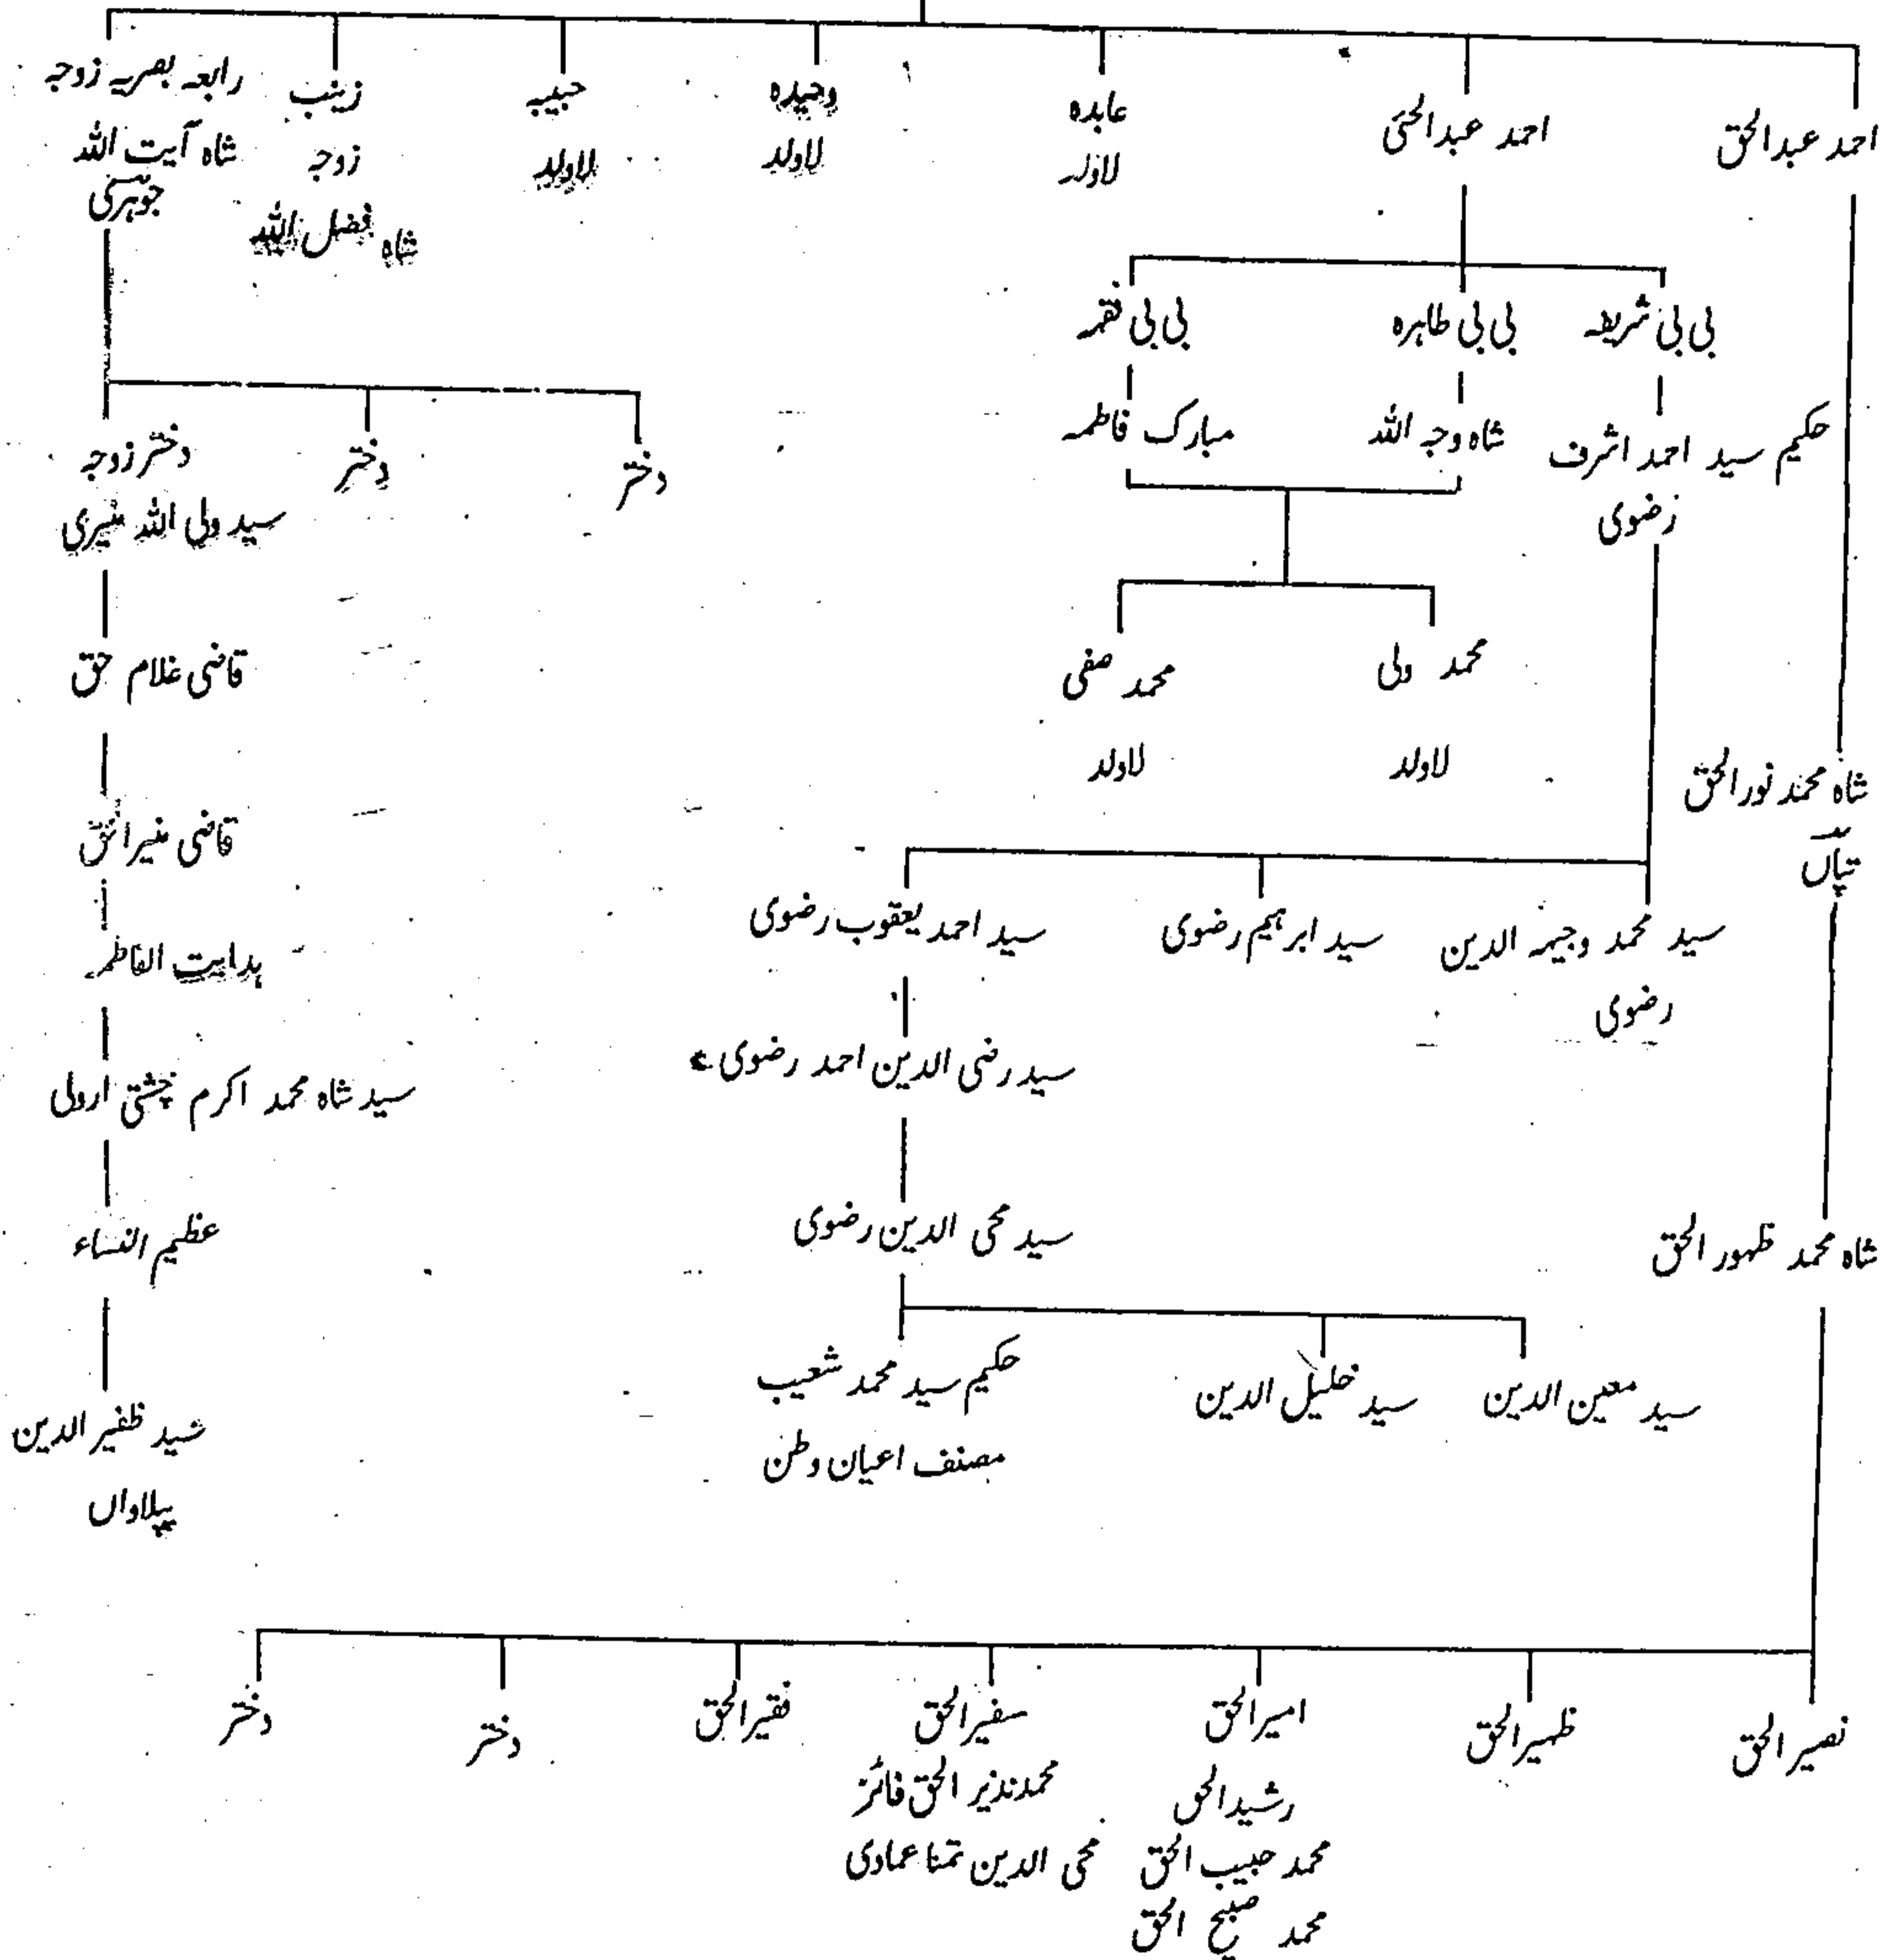 احمد عبدالحق
احمد عبدالحئی
عابدہ
لاولد
وحیدہ
لاولد
حبیبہ
لاولد
زینب
زوجہ
شاہ فضل اللہ
رابعہ بصریہ زوجہ
شاہ آیت اللہ
جوہری
بی بی شریفہ
بی بی طاہرہ
بی بی
حکیم سید احمد اشرف
رضوی
شاہ وجہ اللہ
مبارک فاطمہ
دختر
دختر
دختر زوجہ
سید ولی اللہ منیری
محمد ولی
لاولد
محمد صفی
لاولد
قاضی غلام حق
شاہ محمد نورالحق
تپاں
قاضی منیرالحق
سید محمد وجیہہ الدین
رضوی
سید ابرہیم رضوی
سید احمد یعقوب رضوی
ہدایت الفاطمہ
سید رضی الدین احمد رضوی
سید شاہ محمد اکرم چشتی ارولی
شاہ محمد ظہور الحق
سید محی الدین رضوی
عظیم النساء
سید معین الدین
سید خلیل الدین
حکیم سید محمد شعیب
مصنف اعیان وطن
سید ظفیر الدین
پپلاواں
نصیر الحق
ظہیرالحق
امیرالحق
رشیدالحق
محمد حبیب الحق
محمد صبیح الحق
سفیرالحق
محمدنذیر الحق فائز
محی الدین تمنا عمادی
فقیرالحق
دختر
دختر